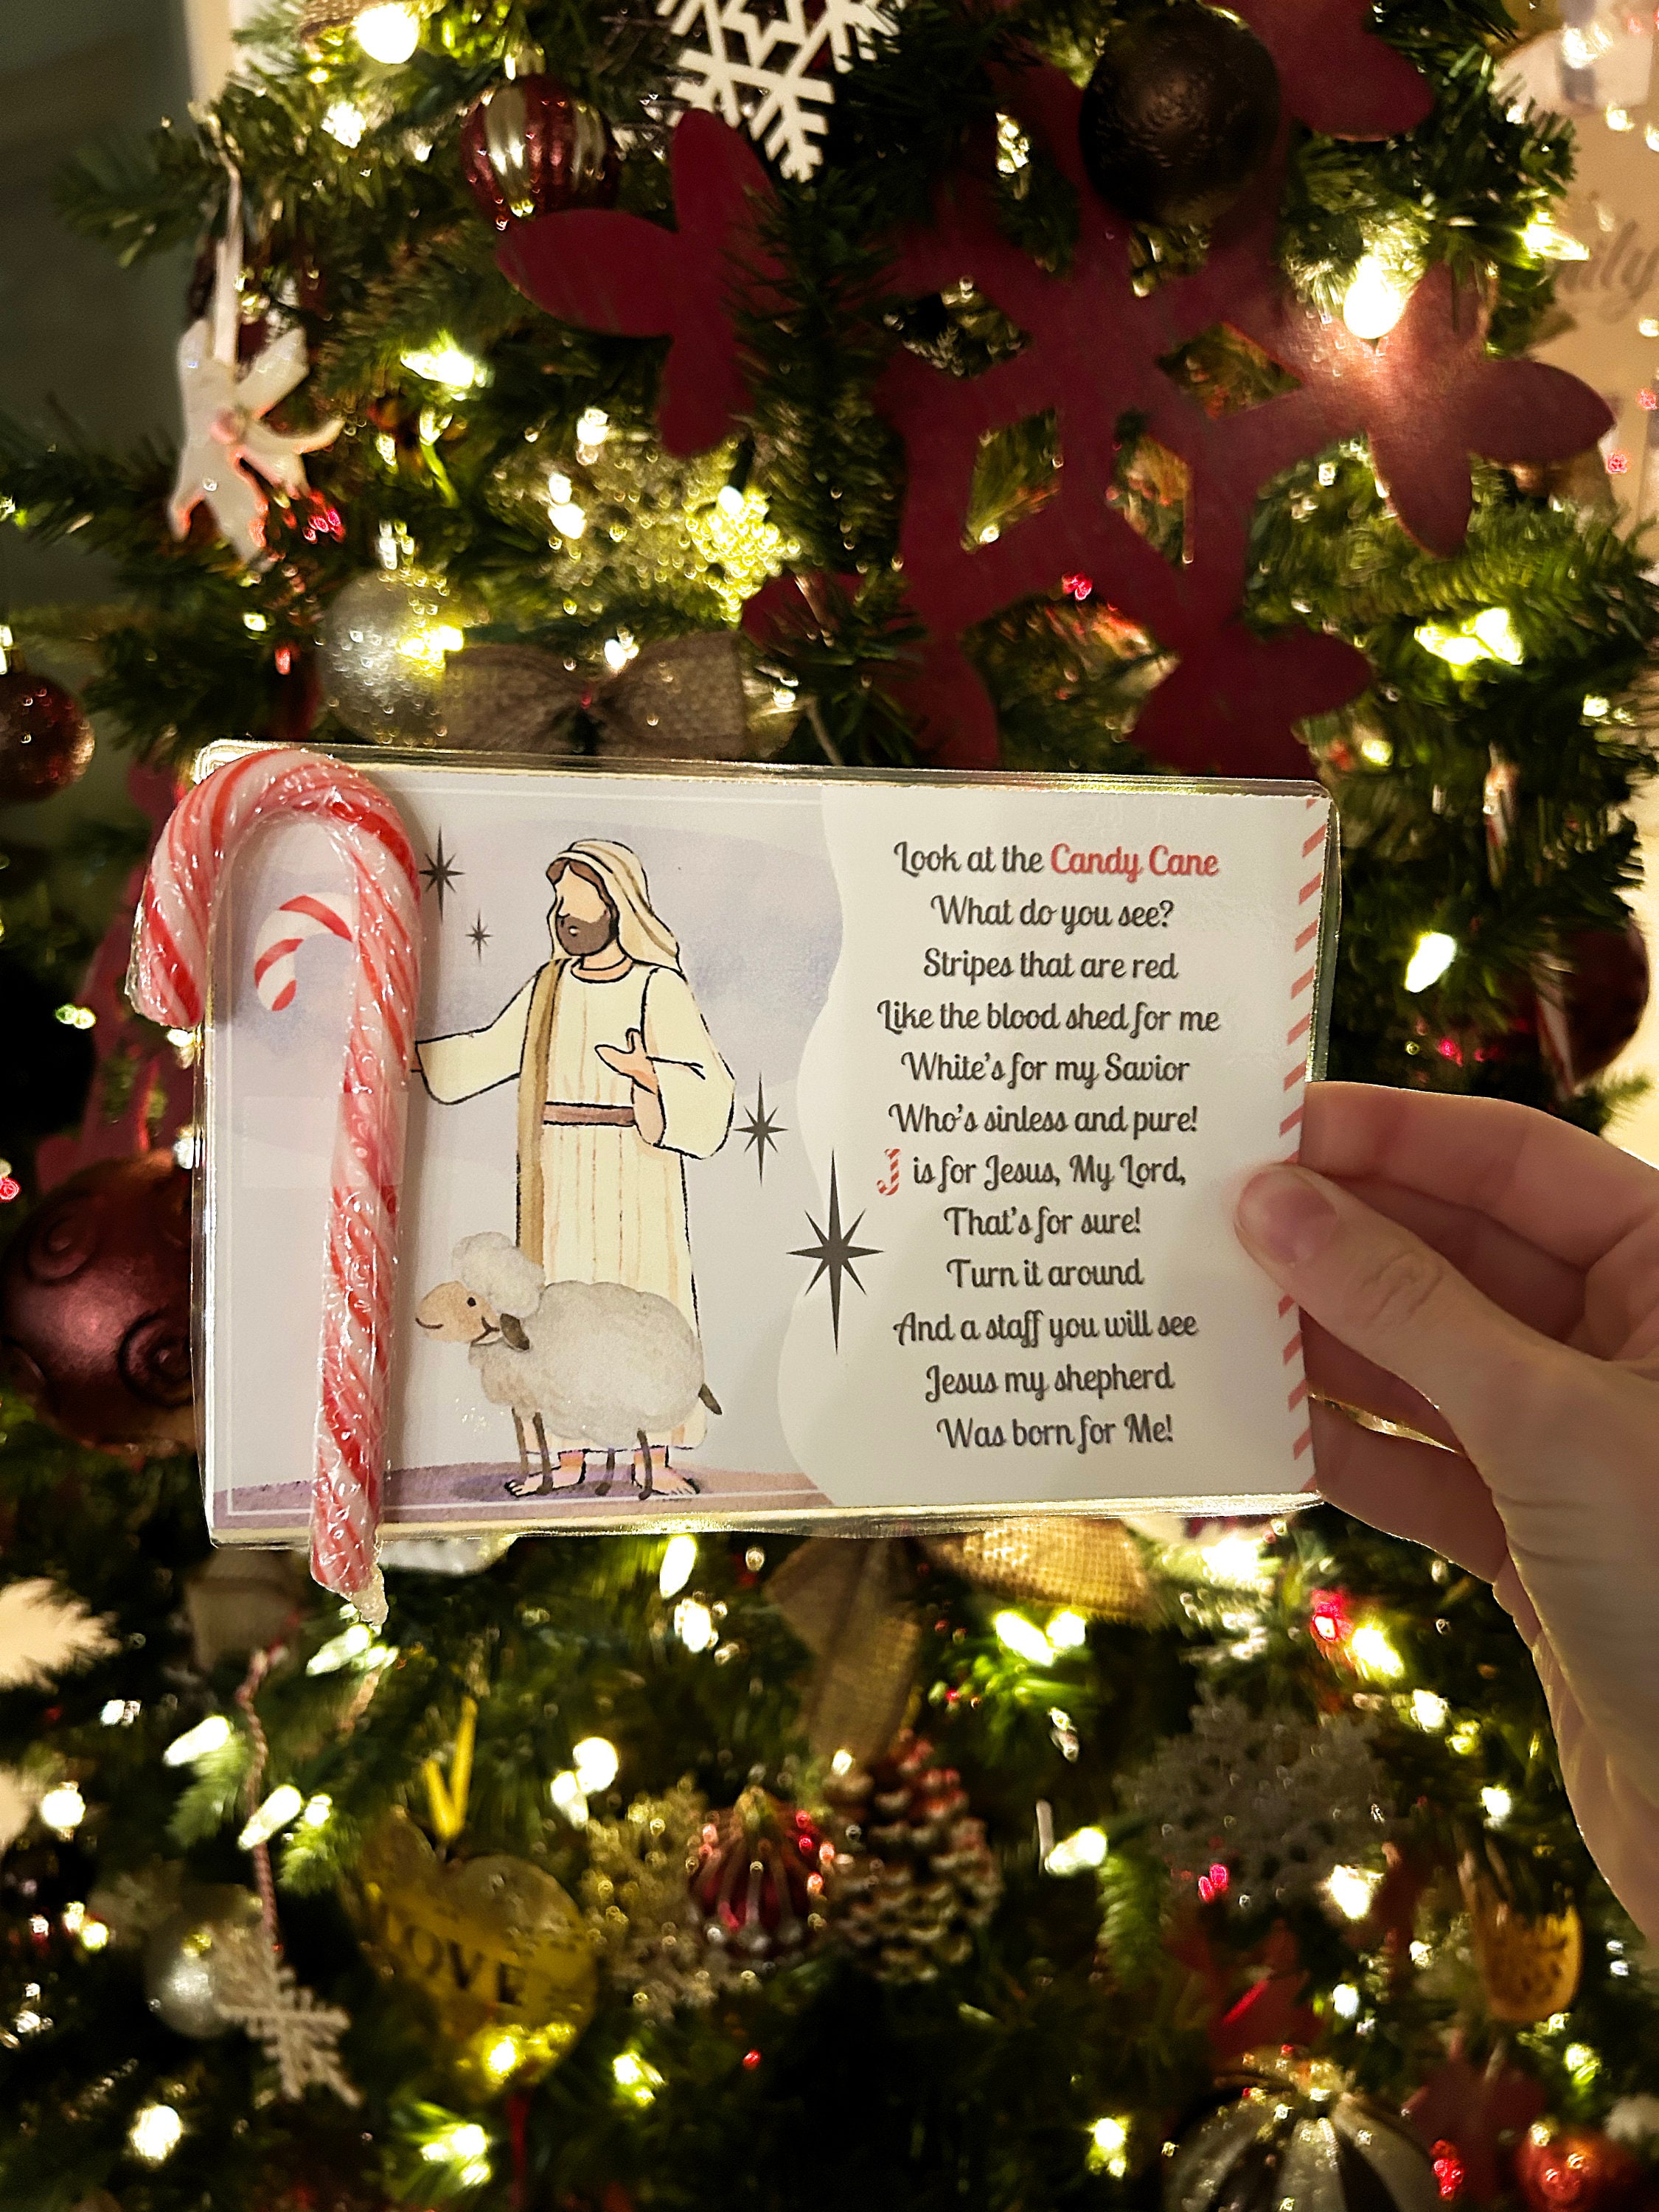 Look at the Candy Cane
What do you see?
Stripes that are red
Like the blood shed for me
White's for my Savior
Who's sinless and pure!
J is for Jesus, My Lord,
That's for sure!
Turn it around
And a staff you will see
Jesus my shepherd
Was born for Me!
LOVE